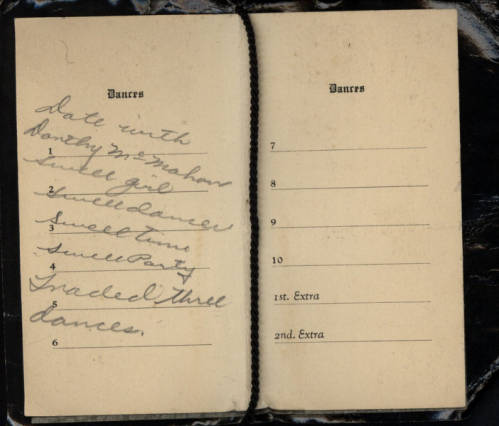 Dances
Date with
Dorothy McMahon
1
Swell girl
2
Swell dancer
3
Swell time
4
Swell Party
Traded three
5
dances.
6
Dances
7
8
9
10
1st. Extra
2nd. Extra